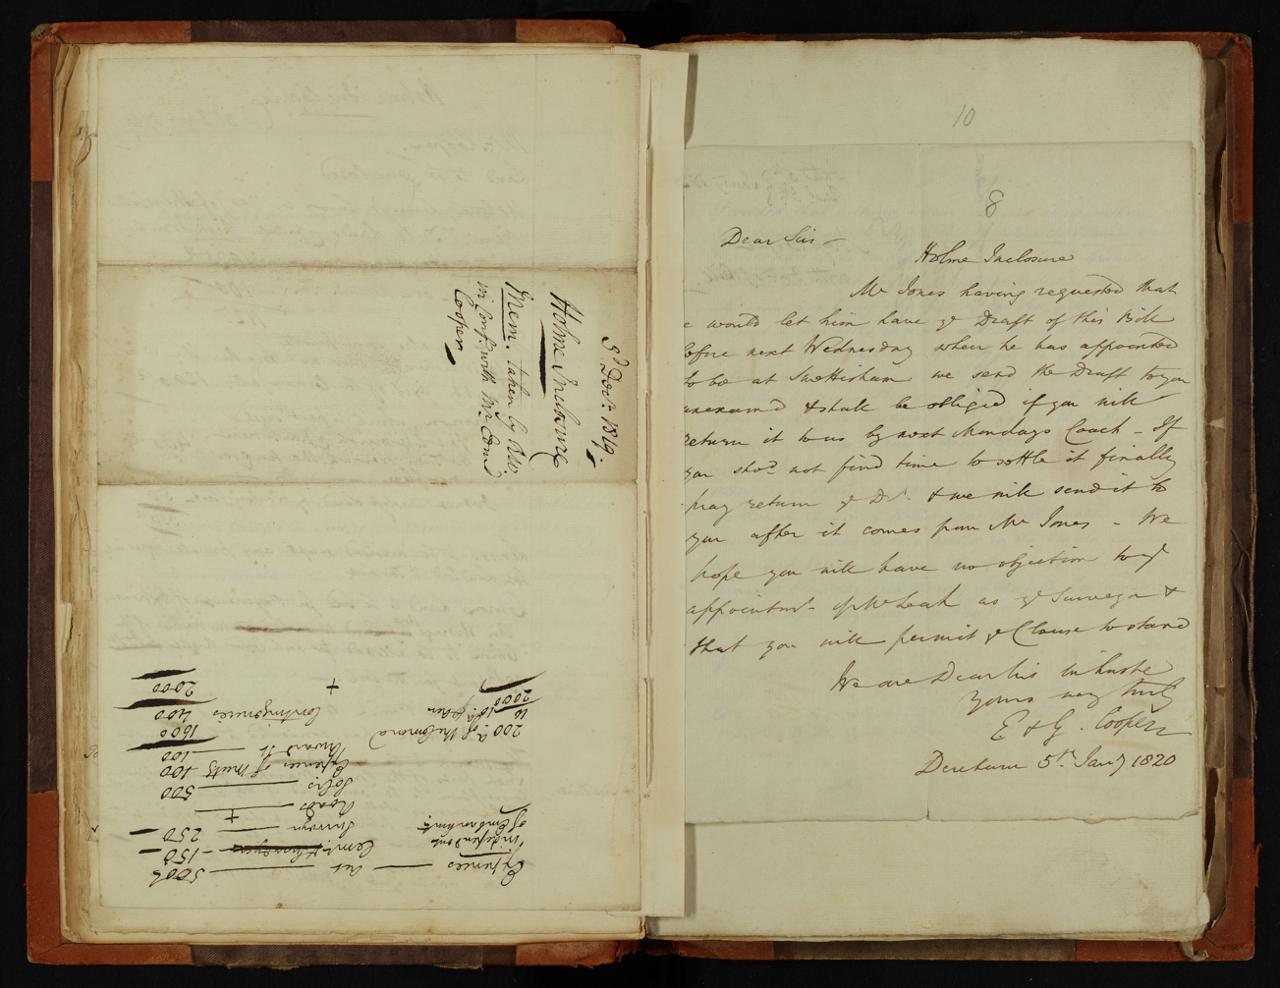 3d. Decr. 1819.
Holme Inclosure
Mem. taken by
in Conf. with Mr. Comd
Cooper
Expences — Act — 500£
independent Comr. — 150
of Embankmt. Survey — 250
Roads — +
Solrs — 500
Expences of Meets 100
Award &c — 100
200 a. of the Comond 1600
10
2000 Contingencies 400
+ 2000
10
8
Dear Sir —
Holme Inclosure
Mr Jones having requested that
would let him have ye Draft of this Bill
before next Wednesday when he has appointed
to be at Snettisham we send the Draft to you
& shall be obliged if you will
return it to us by next Mondays Coach — If
you shod. not find time to settle it finally
pray return ye Dft. & we will send it to
you after it comes from Mr Jones — We
hope you will have no objection to ye
appointmt. of Mr Leak as ye Surveyor &
that you will permit ye Clause to stand
We are Dear Sir in haste
Yours very truly
E & G. Cooper
Dereham 5th. Jany 1820